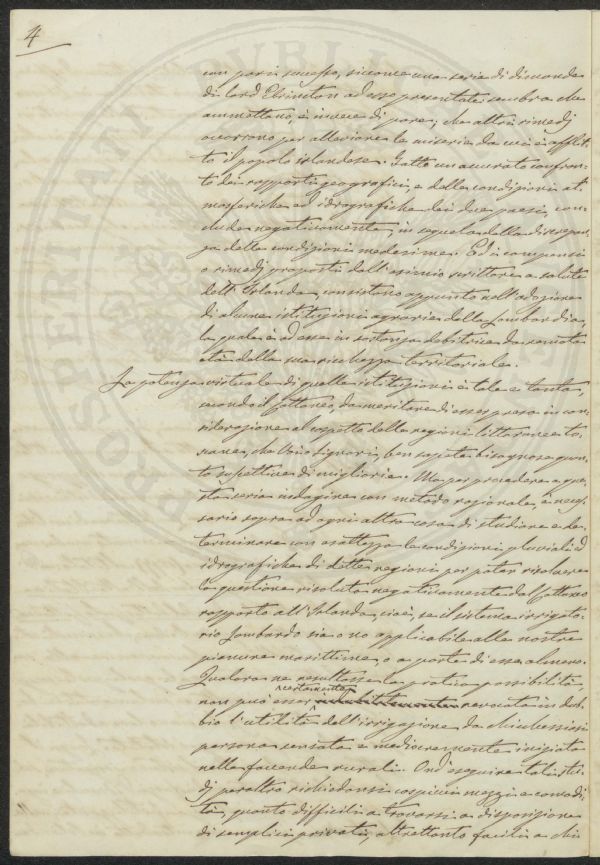 4
con pari successo, siccome una serie di dimande
di lord Ebrington ad esso presentate sembra che
ammettano, è invece di parere, che altri rimedj
occorrono per alleviare le miserie da cui è afflit-
to il popolo irlandese. Fatto un accurato confron-
to dei rapporti geografici, e delle condizioni at-
mosferiche ed idrografiche dei due paesi, con-
clude negativamente, in sequela della discrepan-
za delle condizioni medesime. Ed i compensi
o rimedj proposti dall'esimio scrittore a salute
dell'Irlanda, consistono appunto nell'adozione
di alcune istituzioni agrarie della Lombardia,
la quale è ad esse in sostanza debitrice da remota
età della sua ricchezza territoriale.
La potenza virtuale di quelle istituzioni è tale e tanta,
secondo il Cattaneo, da meritare di esser presa in con-
siderazione al cospetto delle regioni littoranee to-
scane, che Voi o Signori, ben sapete bisognose quan-
to suscettive di migliorie. Ma per procedere a que-
sta seria indagine con metodo razionale, è neces-
sario sopra ad ogni altra cosa di studiare e de-
terminare con esattezza le condizioni pluviali ed
idrografiche di dette regioni per poter risolvere
la questione risoluta negativamente dal Cattaneo
rapporto all'Irlanda, cioè, se il sistema irrigato-
rio Lombardo sia o no applicabile alle nostre
pianure marittime, o a parte di esse almeno.
Qualora ne resultasse la pratica possibilità,
certamente
non può esser indubitatamente revocata in dub-
bio l'utilità dell'irrigazione da chicchessia
persona sensata e mediocremente iniziata
nelle faccende rurali. Ond'eseguire tali stu-
dj peraltro richiedonsi cospicui mezzi e comodi-
tà, quanto difficili a trovarsi a disposizione
di semplici privati, altrettanto facili a chi
PVBLI
PROSPERITATI